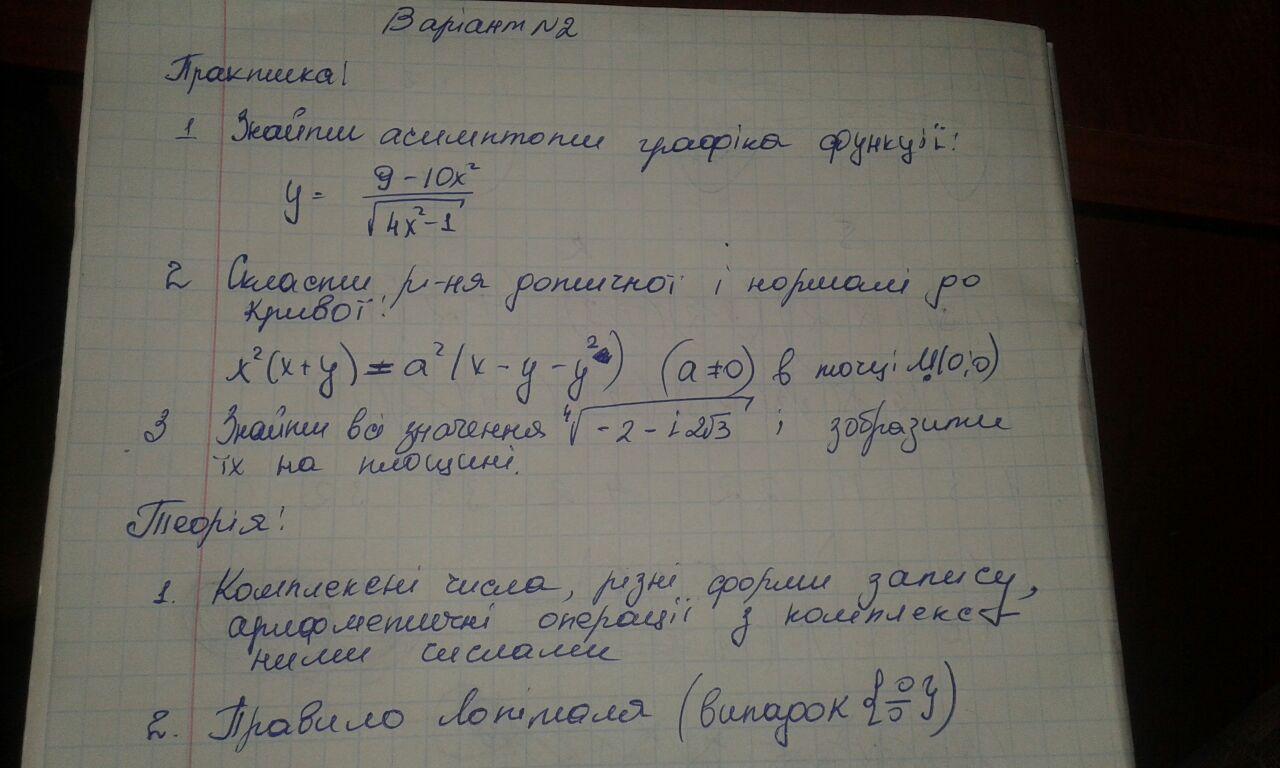 Варіант №2
Практика!
1 Знайти асимптоти графіка функції:
y = (9 - 10x²) / √(4x² - 1)
2 Скласти р-ня дотичної і нормалі до
кривої:
x²(x+y) = a²(x - y - y²) (a ≠ 0) в точці M(0;0)
3 Знайти всі значення ⁴√(-2 - i2√3) і зобразити
їх на площині.
Теорія!
1. Комплексні числа, різні форми запису,
арифметичні операції з комплекс-
ними числами
2. Правило Лопіталя (випадок {0/0})